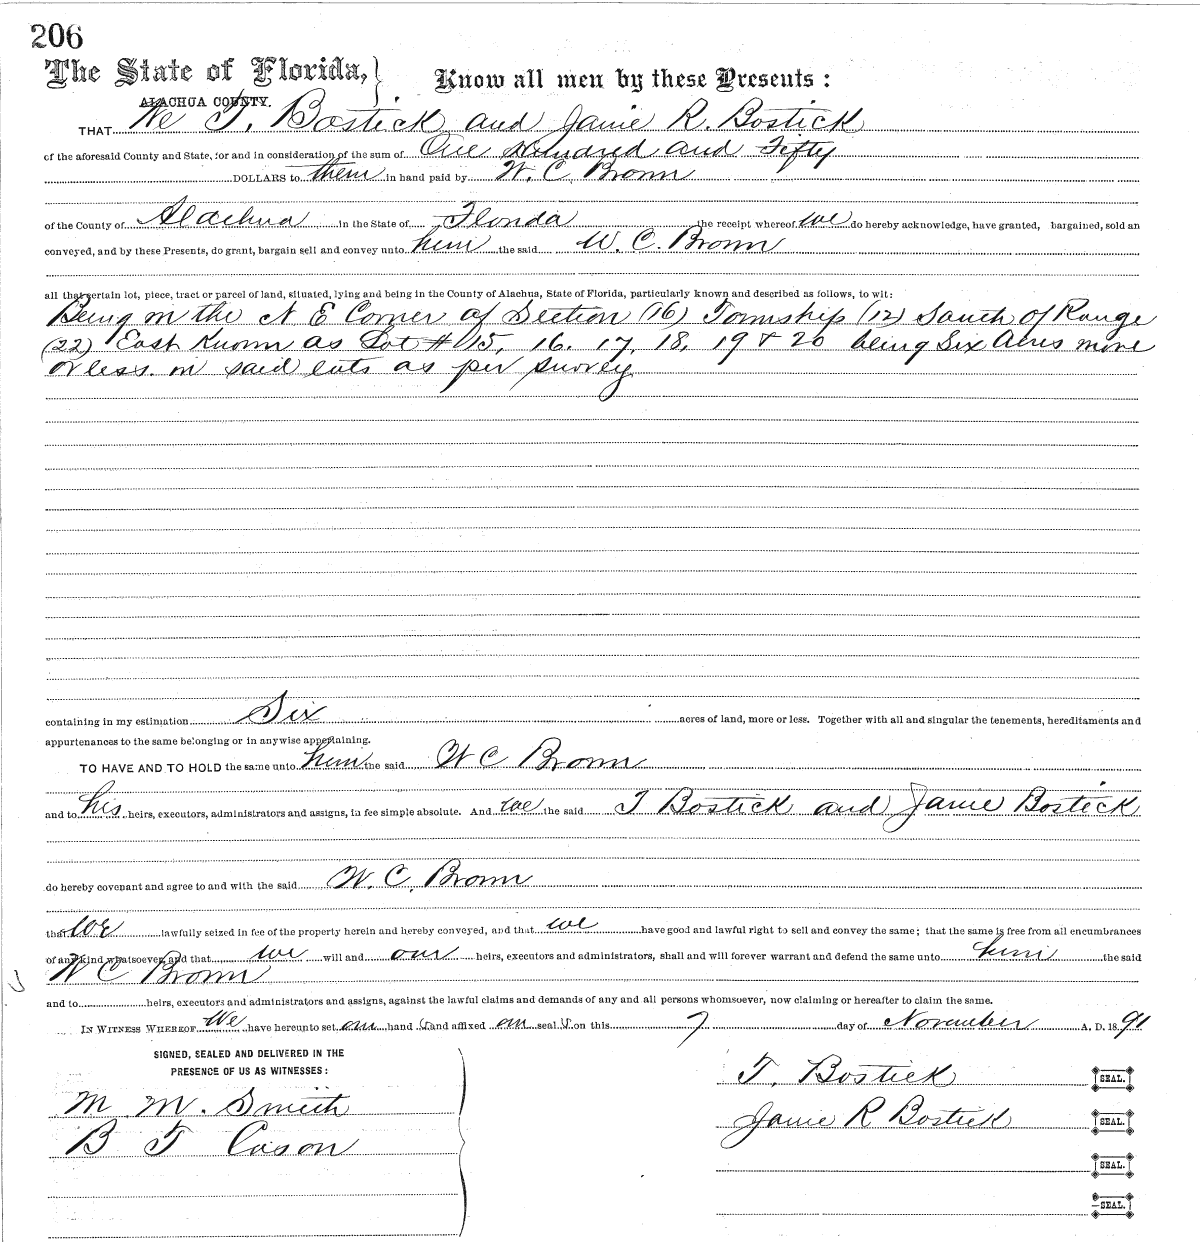 206
The State of Florida, } Know all men by these Presents :
ALACHUA COUNTY.
THAT We T. Bostick and Janie R. Bostick
of the aforesaid County and State, for and in consideration of the sum of One Hundred and Fifty
DOLLARS to them in hand paid by W. C. Brown
of the County of Alachua in the State of Florida the receipt whereof we do hereby acknowledge, have granted, bargained, sold an
conveyed, and by these Presents, do grant, bargain sell and convey unto him the said W. C. Brown
all that certain lot, piece, tract or parcel of land, situated, lying and being in the County of Alachua, State of Florida, particularly known and described as follows, to wit:
Being in the N E Corner of Section (16) Township (12) South of Range
(22) East Known as Lot # 15, 16. 17, 18, 19 & 20 being Six Acres more
or less in said lots as per survey
containing in my estimation Six acres of land, more or less. Together with all and singular the tenements, hereditaments and
appurtenances to the same belonging or in anywise appertaining.
TO HAVE AND TO HOLD the same unto him the said W C Brown
and to his heirs, executors, administrators and assigns, in fee simple absolute. And we the said T Bostick and Janie Bostick
do hereby covenant and agree to and with the said W. C. Brown
that We lawfully seized in fee of the property herein and hereby conveyed, and that we have good and lawful right to sell and convey the same; that the same is free from all encumbrances
of any kind whatsoever, and that we will and our heirs, executors and administrators, shall and will forever warrant and defend the same unto him the said
W C Brown
and to heirs, executors and administrators and assigns, against the lawful claims and demands of any and all persons whomsoever, now claiming or hereafter to claim the same.
IN WITNESS WHEREOF We have hereunto set our hand s and affixed our seal s on this 7 day of November A. D. 18 91
SIGNED, SEALED AND DELIVERED IN THE
PRESENCE OF US AS WITNESSES :
T. Bostick SEAL.
M M. Smith
Janie R Bostick SEAL.
B T Cason
SEAL.
SEAL.